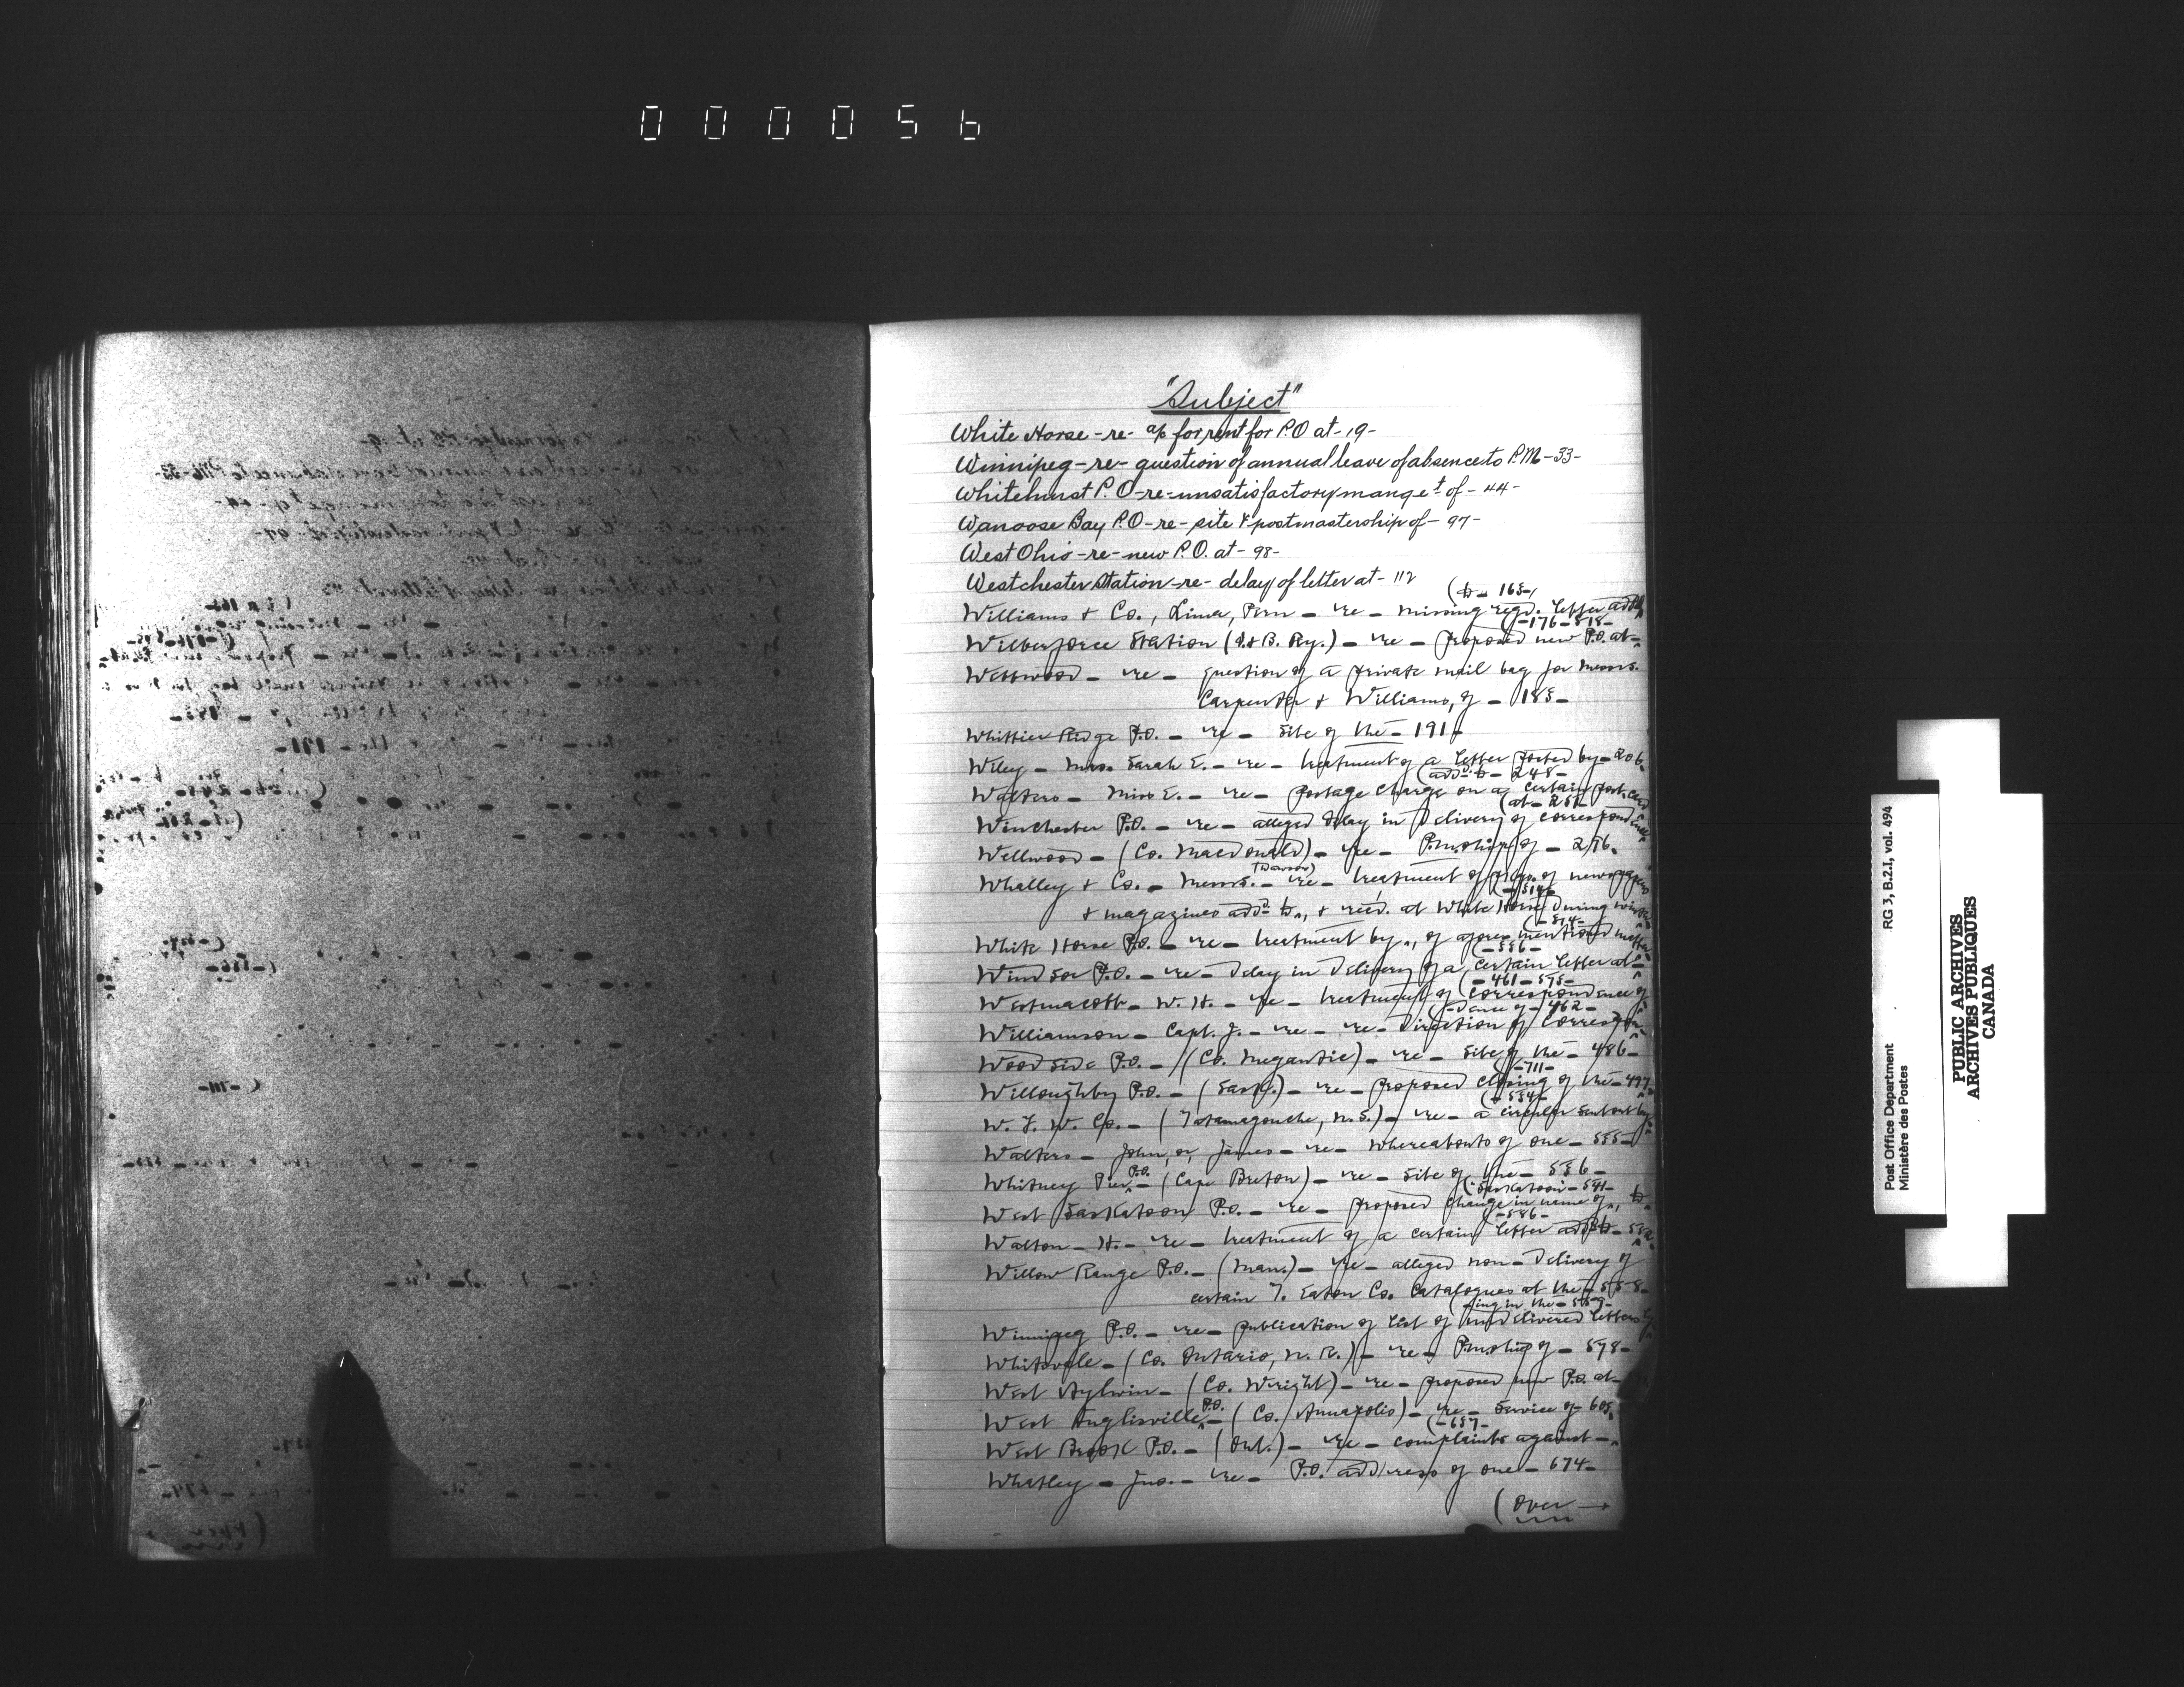 000056
"Subject"
White Horse - re - a/c for rent for P.O at - 19 -
Winnipeg - re - question of annual leave of absence to P.M - 33 -
Whitehurst P.O - re - unsatisfactory mangeᵗ of - 44 -
Wanoose Bay P.O - re - site & postmastership of - 97 -
West Ohio - re - new P.O. at - 98 -
Westchester Station - re - delay of letter at - 112
(to - 165 -
Williams & Co., Lima, Peru - re - missing regd. letter addd
(- 176 - 518 -
Wilberforce Station (I. & B. Ry.) - re - proposed new P.O. at -
Westwood - re - question of a private mail bag for Messrs.
Carpenter & Williams, of - 185 -
Whittier Ridge P.O. - re - site of the - 191 -
Wiley - Mrs. Sarah E. - re - treatment of a letter posted by - 206 -
(addd to - 248 -
Walters - Miss E. - re - postage charge on a certain post card
(at - 251 -
Winchester P.O. - re - alleged delay in delivery of correspondence
Wellwood - (Co. Macdonald) - re - P.m.ship of - 276 -
(Dawson)
Whalley & Co. - Messrs. - re - treatment of pkgs. of newspapers
(- 514 -
& magazines addd to, & recd. at White Horse during winter
(- 514 -
White Horse P.O. - re - treatment by, of aforementioned matter
(- 556 -
Windsor P.O. - re - delay in delivery of a certain letter at -
(- 461 - 575 -
Westmacott - W. H. - re - treatment of correspondence of
(- dence of - 462 -
Williamson - Capt. J. - re - re-direction of correspon-
Woodside P.O. - (Co. Megantic) - re - site of the - 486 -
(- 711 -
Willoughby P.O. - (Sask.) - re - proposed closing of the - 497 -
(- 534 -
W. F. W. Co. - (Tatamagouche, N.S.) - re - a circular sent out by
Walters - John, or, James - re - whereabouts of one - 535 -
P.O.
Whitney Pier - (Cape Breton) - re - site of the - 536 -
(Saskatoon - 541 -
West Saskatoon P.O. - re - proposed change in name of, to
(- 586 -
Walton - H. - re - treatment of a certain letter addd to -
Willow Range P.O. - (Man.) - re - alleged non-delivery of
certain T. Eaton Co. catalogues at the - 558 -
(ing in the - 569 -
Winnipeg P.O. - re - publication of list of undelivered letters
Whitevale - (Co. Ontario, N. R.) - re - P.m.ship of - 578 -
West Aylwin - (Co. Wright) - re - proposed new P.O. at -
P.O.
West Inglisville - (Co. Annapolis) - re - service of - 605 -
(- 657 -
West Brook P.O. - (Ont.) - re - complaints against -
Whatley - Jno. - re - P.O. address of one - 674 -
(Over →
Post Office Department
Ministère des Postes
RG 3, B.2.I, vol. 494
PUBLIC ARCHIVES
ARCHIVES PUBLIQUES
CANADA